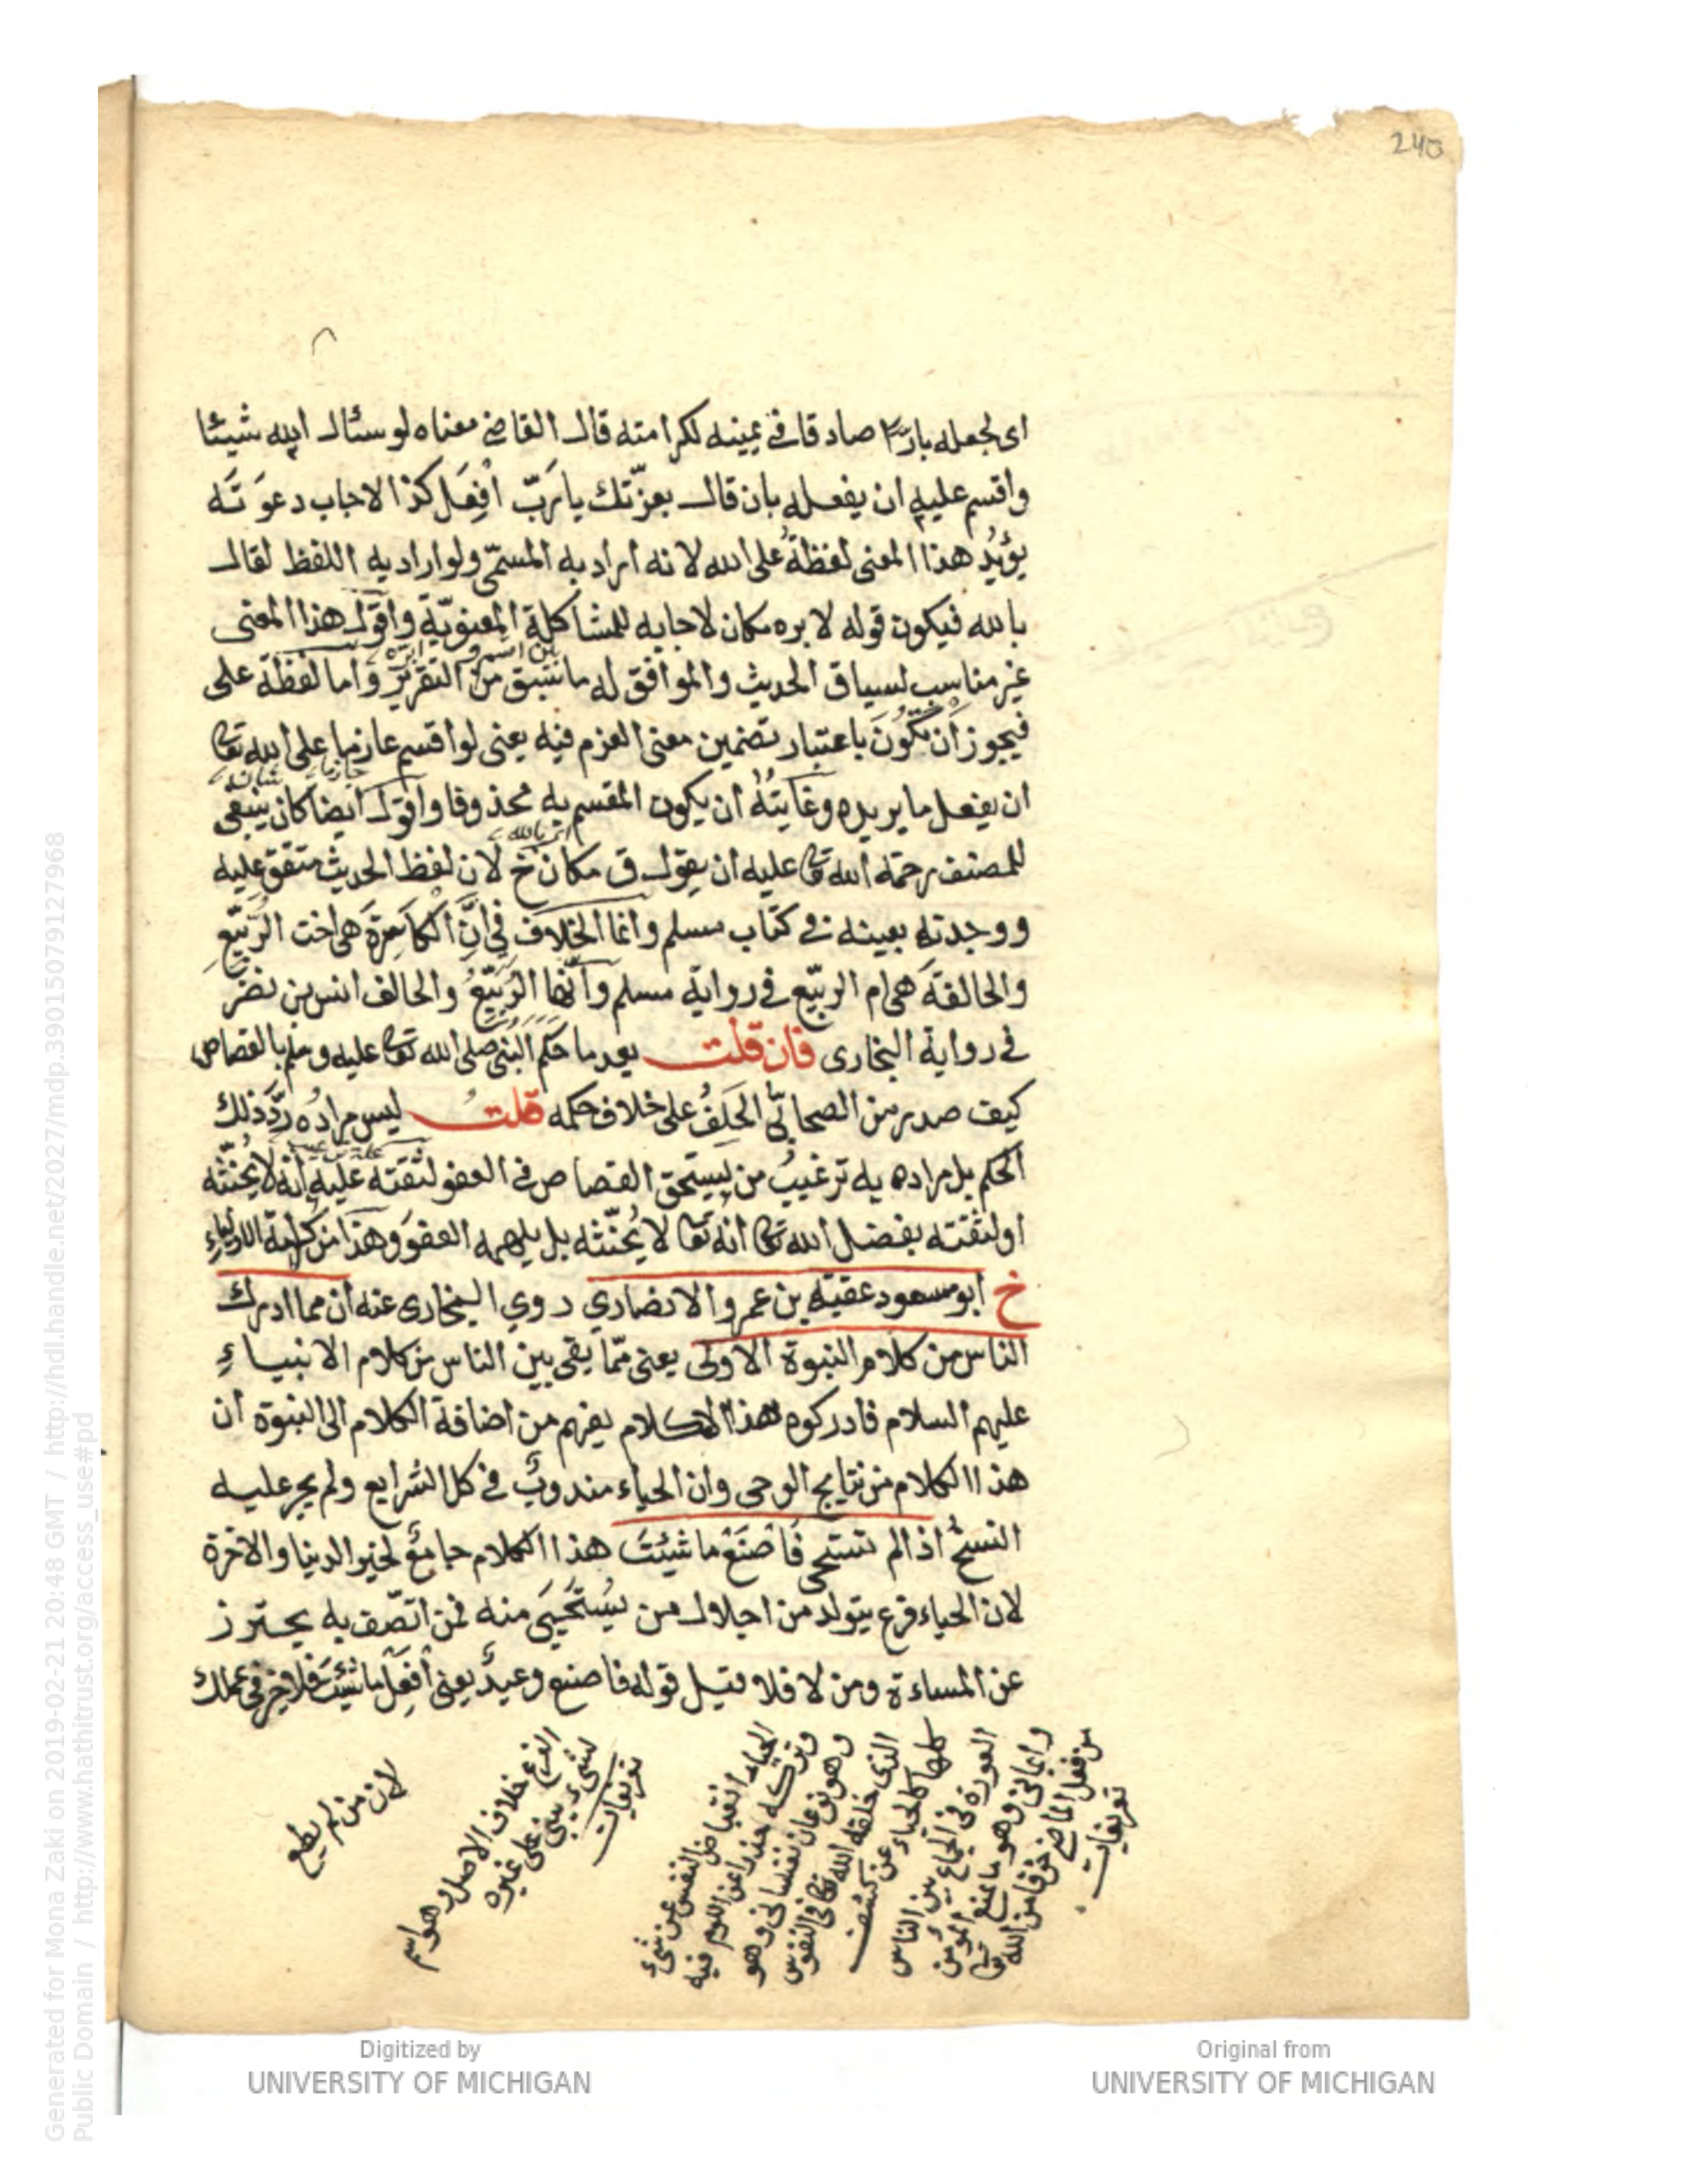 240
اى لجعله بارًّا صادقا فى يمينه لكرامته قال القاضى معناه لو سئال الله شيئا
واقسم عليه ان يفعله بان قال بعزّتك يا رَبّ اَفِعَل كذا لاجاب دعوَتَه
يؤيّد هذا المعنى لفظةُ على الله لانه اراد به المسمّى ولو اراد به اللفظ لقال
بالله فيكون قوله لابره مكان لاجابه للمشاكلة المعنويّة واقول هذا المعنى
غير مناسب لسياق الحديث والموافق له ما سَبق من التقرير واما لفظة على
فيجوز اَن تكُونَ باعتبار تضمين معنى العزم فيه يعنى لو اقسم عازما على الله تعا
ان يفعل ما يريده وغايتهُ ان يكون المقسم به محذوفا واقول ايضا كان ينبغى
للمصنف رحمة الله تعا عليه ان يقول ق مكان خ لان لفظ الحديث متفق عليه
ووجدته بعينه فى كتاب مسلم وانما الخلاف فى انّ الكاسِرةَ هى اخت الرّبيّع
والحالفةَ هى ام الربيّع فى رواية مسلم وأنّها الرُبَيّعُ والحالف انس بن نضر
فى رواية البخارى فان قلت بعد ما حكم النبى صلى الله تعا عليه وسلم بالقصاص
كيف صدر من الصحابّى الحَلِفُ على خلاف حكمه قلتُ ليس مرادُه ردَّ ذلك
الحكم بل مراده به ترغيبُ من يستحق القصاص فى العفو لثقته عليه انه لا يحُنّثه
او لثقته بفضل الله تعا انّه تعا لا يُحنّثه بل يلهمه العفوَ وهذا من كرامة الاولياء
خ ابو مسعود عقبة بن عمرو الانصارى روى البخارى عنه ان مما ادرك
الناس من كلام النبوة الاولى يعنى ممّا بقى بين الناس من كلام الانبياءِ
عليهم السلام فادركوه هذا الكلام يفهم من اضافة الكلام الى النبوة ان
هذا الكلام من نتايج الوحى وان الحياء مندوبٌ فى كل الشرايع ولم يجر عليه
النسخُ اذا لم تستحى فَاصْنَعْ ما شئتَ هذا الكلام جامعٌ لخير الدنيا والاخرة
لان الحياء فرع يتولد من اجلال من يُستَحيَى منه فمن اتصّف به يحترز
عن المساءة ومن لا فلا قيل قوله فاصنع وعيدٌ يعنى افِعَلْ ما شئتَ فلا خير فى عملك
لان من لم يطع
الفرع خلاف الاصل وهو اسم
لشىء يبنى على غيره
تعريفات
الحياء انقباض النفس عن شىء
وتركه حذرا عن اللوم فيه
وهو نوعان نفسانى وهو
الذى خلقه الله تعا فى النفوس
كلها كالحياء عن كشف
العورة والجماع بين الناس
وايمانى وهو ما يمنع المؤمن
من فعل المعاصى خوفا من الله تعا
تعريفات
Generated for Mona Zaki on 2019-02-21 20:48 GMT / http://hdl.handle.net/2027/mdp.39015079127968
Public Domain / http://www.hathitrust.org/access_use#pd
Digitized by
UNIVERSITY OF MICHIGAN
Original from
UNIVERSITY OF MICHIGAN